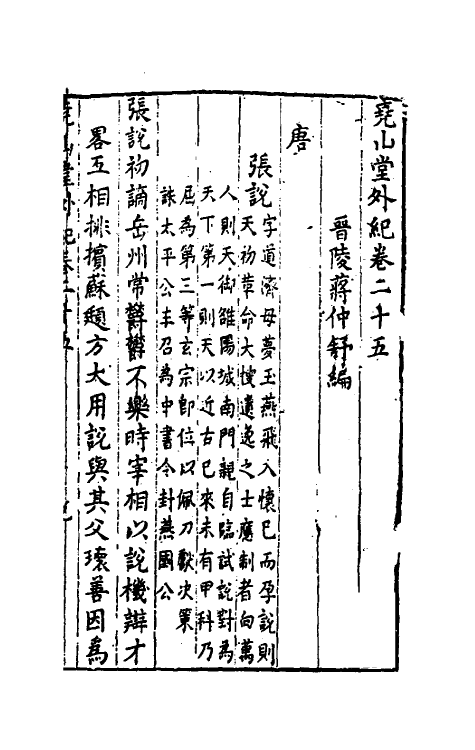 堯山堂外紀卷二十五
晉陵蔣仲舒編
唐
張說
字道濟母夢玉燕飛入懷巳而孕說則
天初革命大搜遺逸之士應制者向萬
人則天御雒陽城南門親自臨試說對為
天下第一則天以近古巳來未有甲科乃
屈為第三等玄宗即位以佩刀獻決策
誅太平公主召為中書令封燕國公
張說初謫岳州常欝欝不樂時宰相以說機辯才
畧互相排擯蘇頲方大用說與其父瓌善因為
堯山堂外紀卷二十五